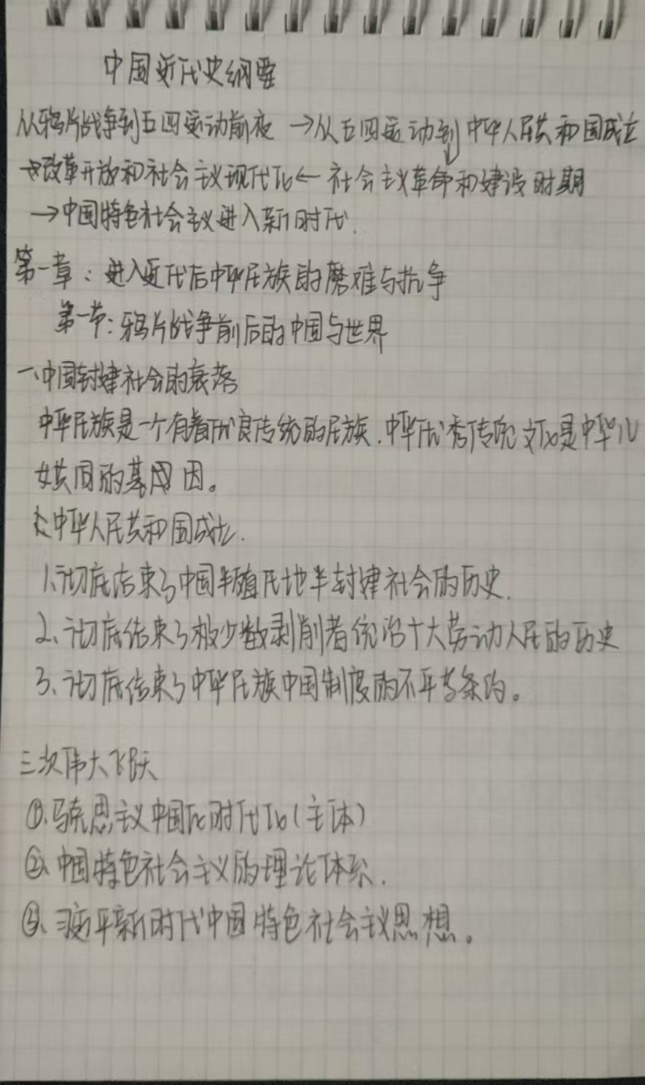 中国近代史纲要
从鸦片战争到五四运动前夜 →从五四运动到中华人民共和国成立
→改革开放和社会主义现代化← 社会主义革命和建设时期
→中国特色社会主义进入新时代.
第一章：进入近代后中华民族的磨难与抗争
第一节：鸦片战争前后的中国与世界
一、中国封建社会的衰落
中华民族是一个有着优良传统的民族.中华优秀传统文化是中华儿
女共同的基因。
中华人民共和国成立.
1、彻底结束了中国半殖民地半封建社会的历史.
2、彻底结束了极少数剥削者统治广大劳动人民的历史
3、彻底结束了中华民族中国制度的不平等条约。
三次伟大飞跃
①.马克思主义中国化时代化(主体)
②.中国特色社会主义的理论体系.
③.习近平新时代中国特色社会主义思想。